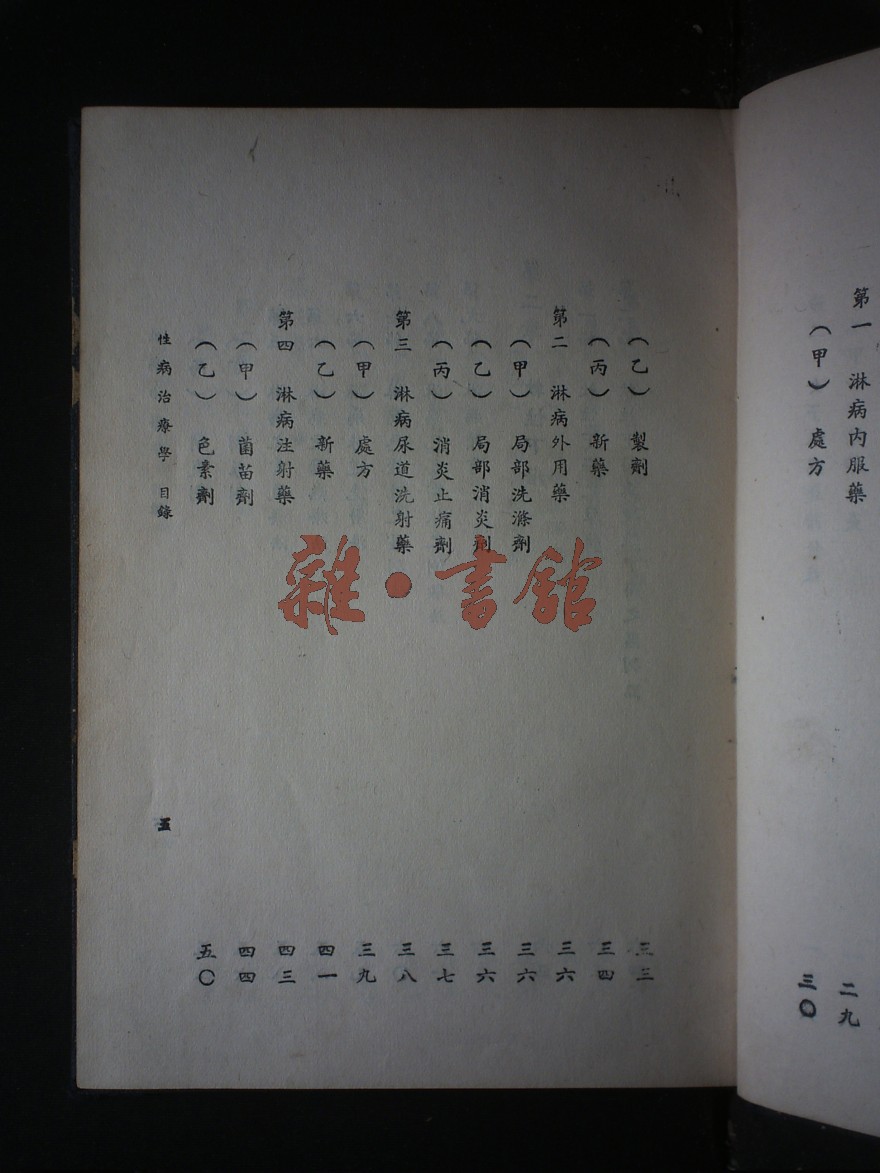 第一 淋病內服藥 二九
(甲) 處方 三〇
(乙) 製劑 三三
(丙) 新藥 三四
第二 淋病外用藥 三六
(甲) 局部洗滌劑 三六
(乙) 局部消炎劑 三六
(丙) 消炎止痛劑 三七
第三 淋病尿道洗射藥 三八
(甲) 處方 三九
(乙) 新藥 四一
第四 淋病注射藥 四三
(甲) 菌苗劑 四四
(乙) 色素劑 五〇
性病治療學 目錄 五
雜·書館